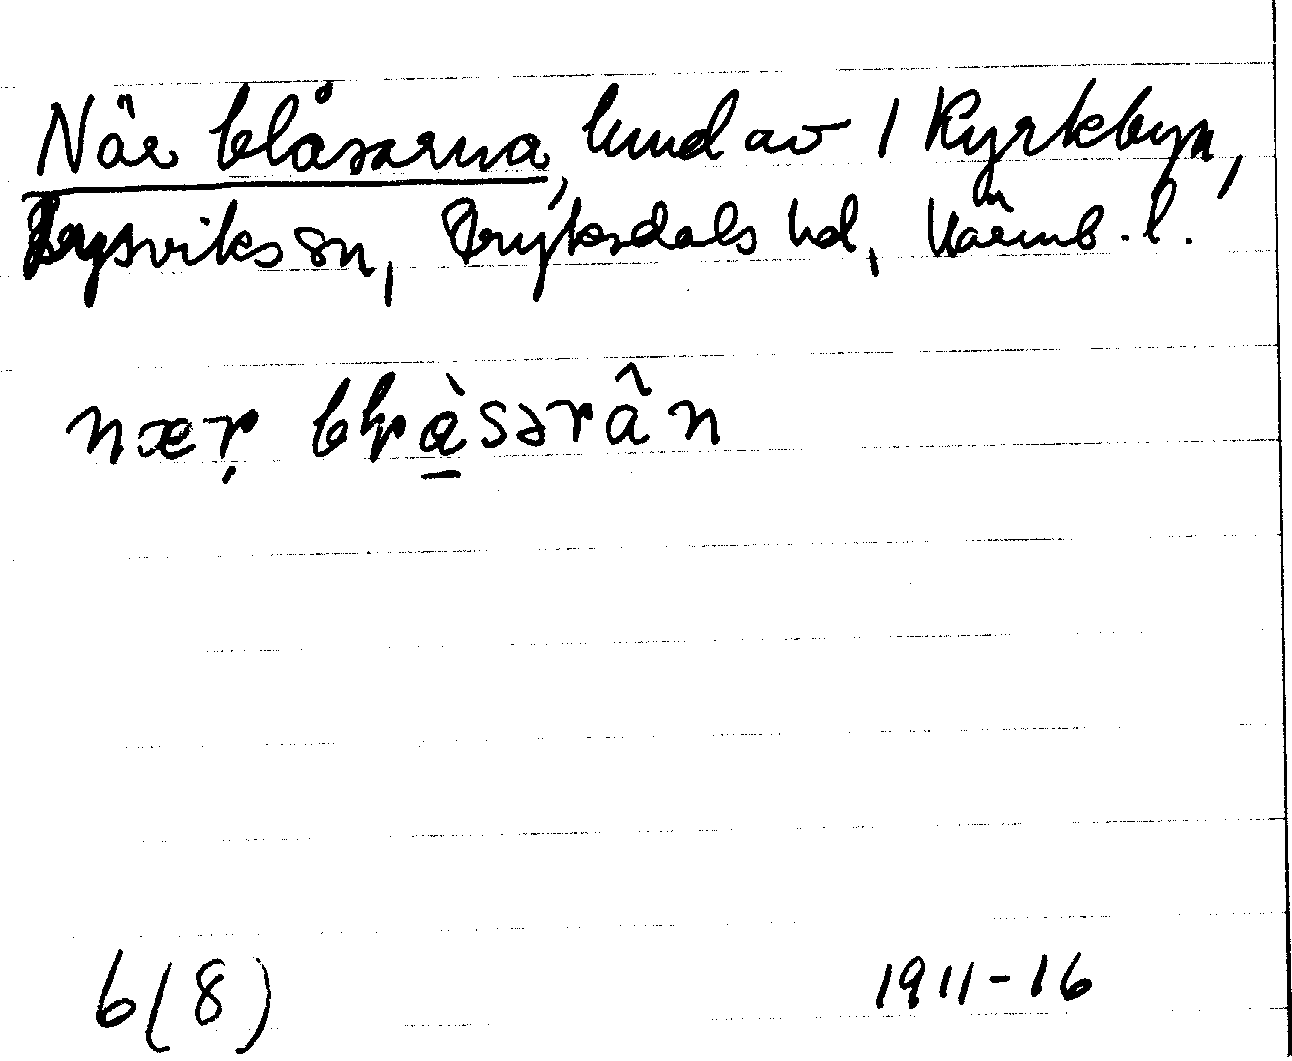 När blåsarna, lund av 1 Kyrkbyn,
Lysviks sn, Fryksdals hd, Värmb. l.
næṛ bḷạ̀sərân
6(8) 1911-16